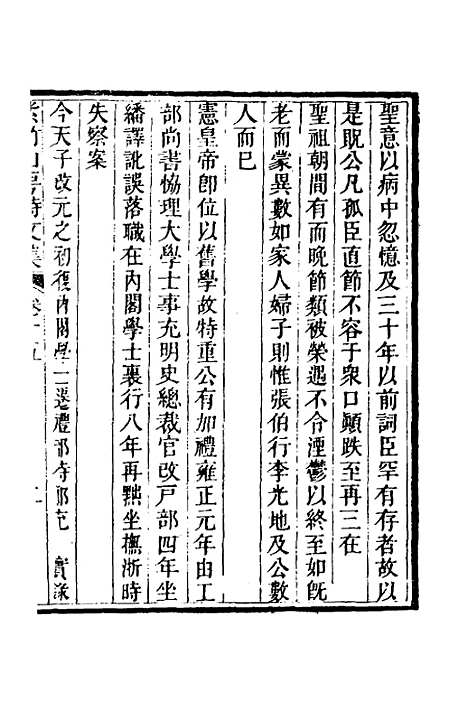 聖意以病中忽憶及三十年以前詞臣罕有存者故以
是旣公凡孤臣直節不容于衆口顚跌至再三在
聖祖朝間有而晚節類被榮遇不令湮鬱以終至如旣
老而蒙異數如家人婦子則惟張伯行李光地及公數
人而已
憲皇帝卽位以舊學故特重公有加禮雍正元年由工
部尚書恊理大學士事充明史總裁官改戸部四年坐
繙譯訛誤落職在內閣學士裏行八年再黜坐撫浙時
失察案
今天子改元之初復內閣學士遷禮部侍郎充 實錄
紫竹山房詩文集 卷十五